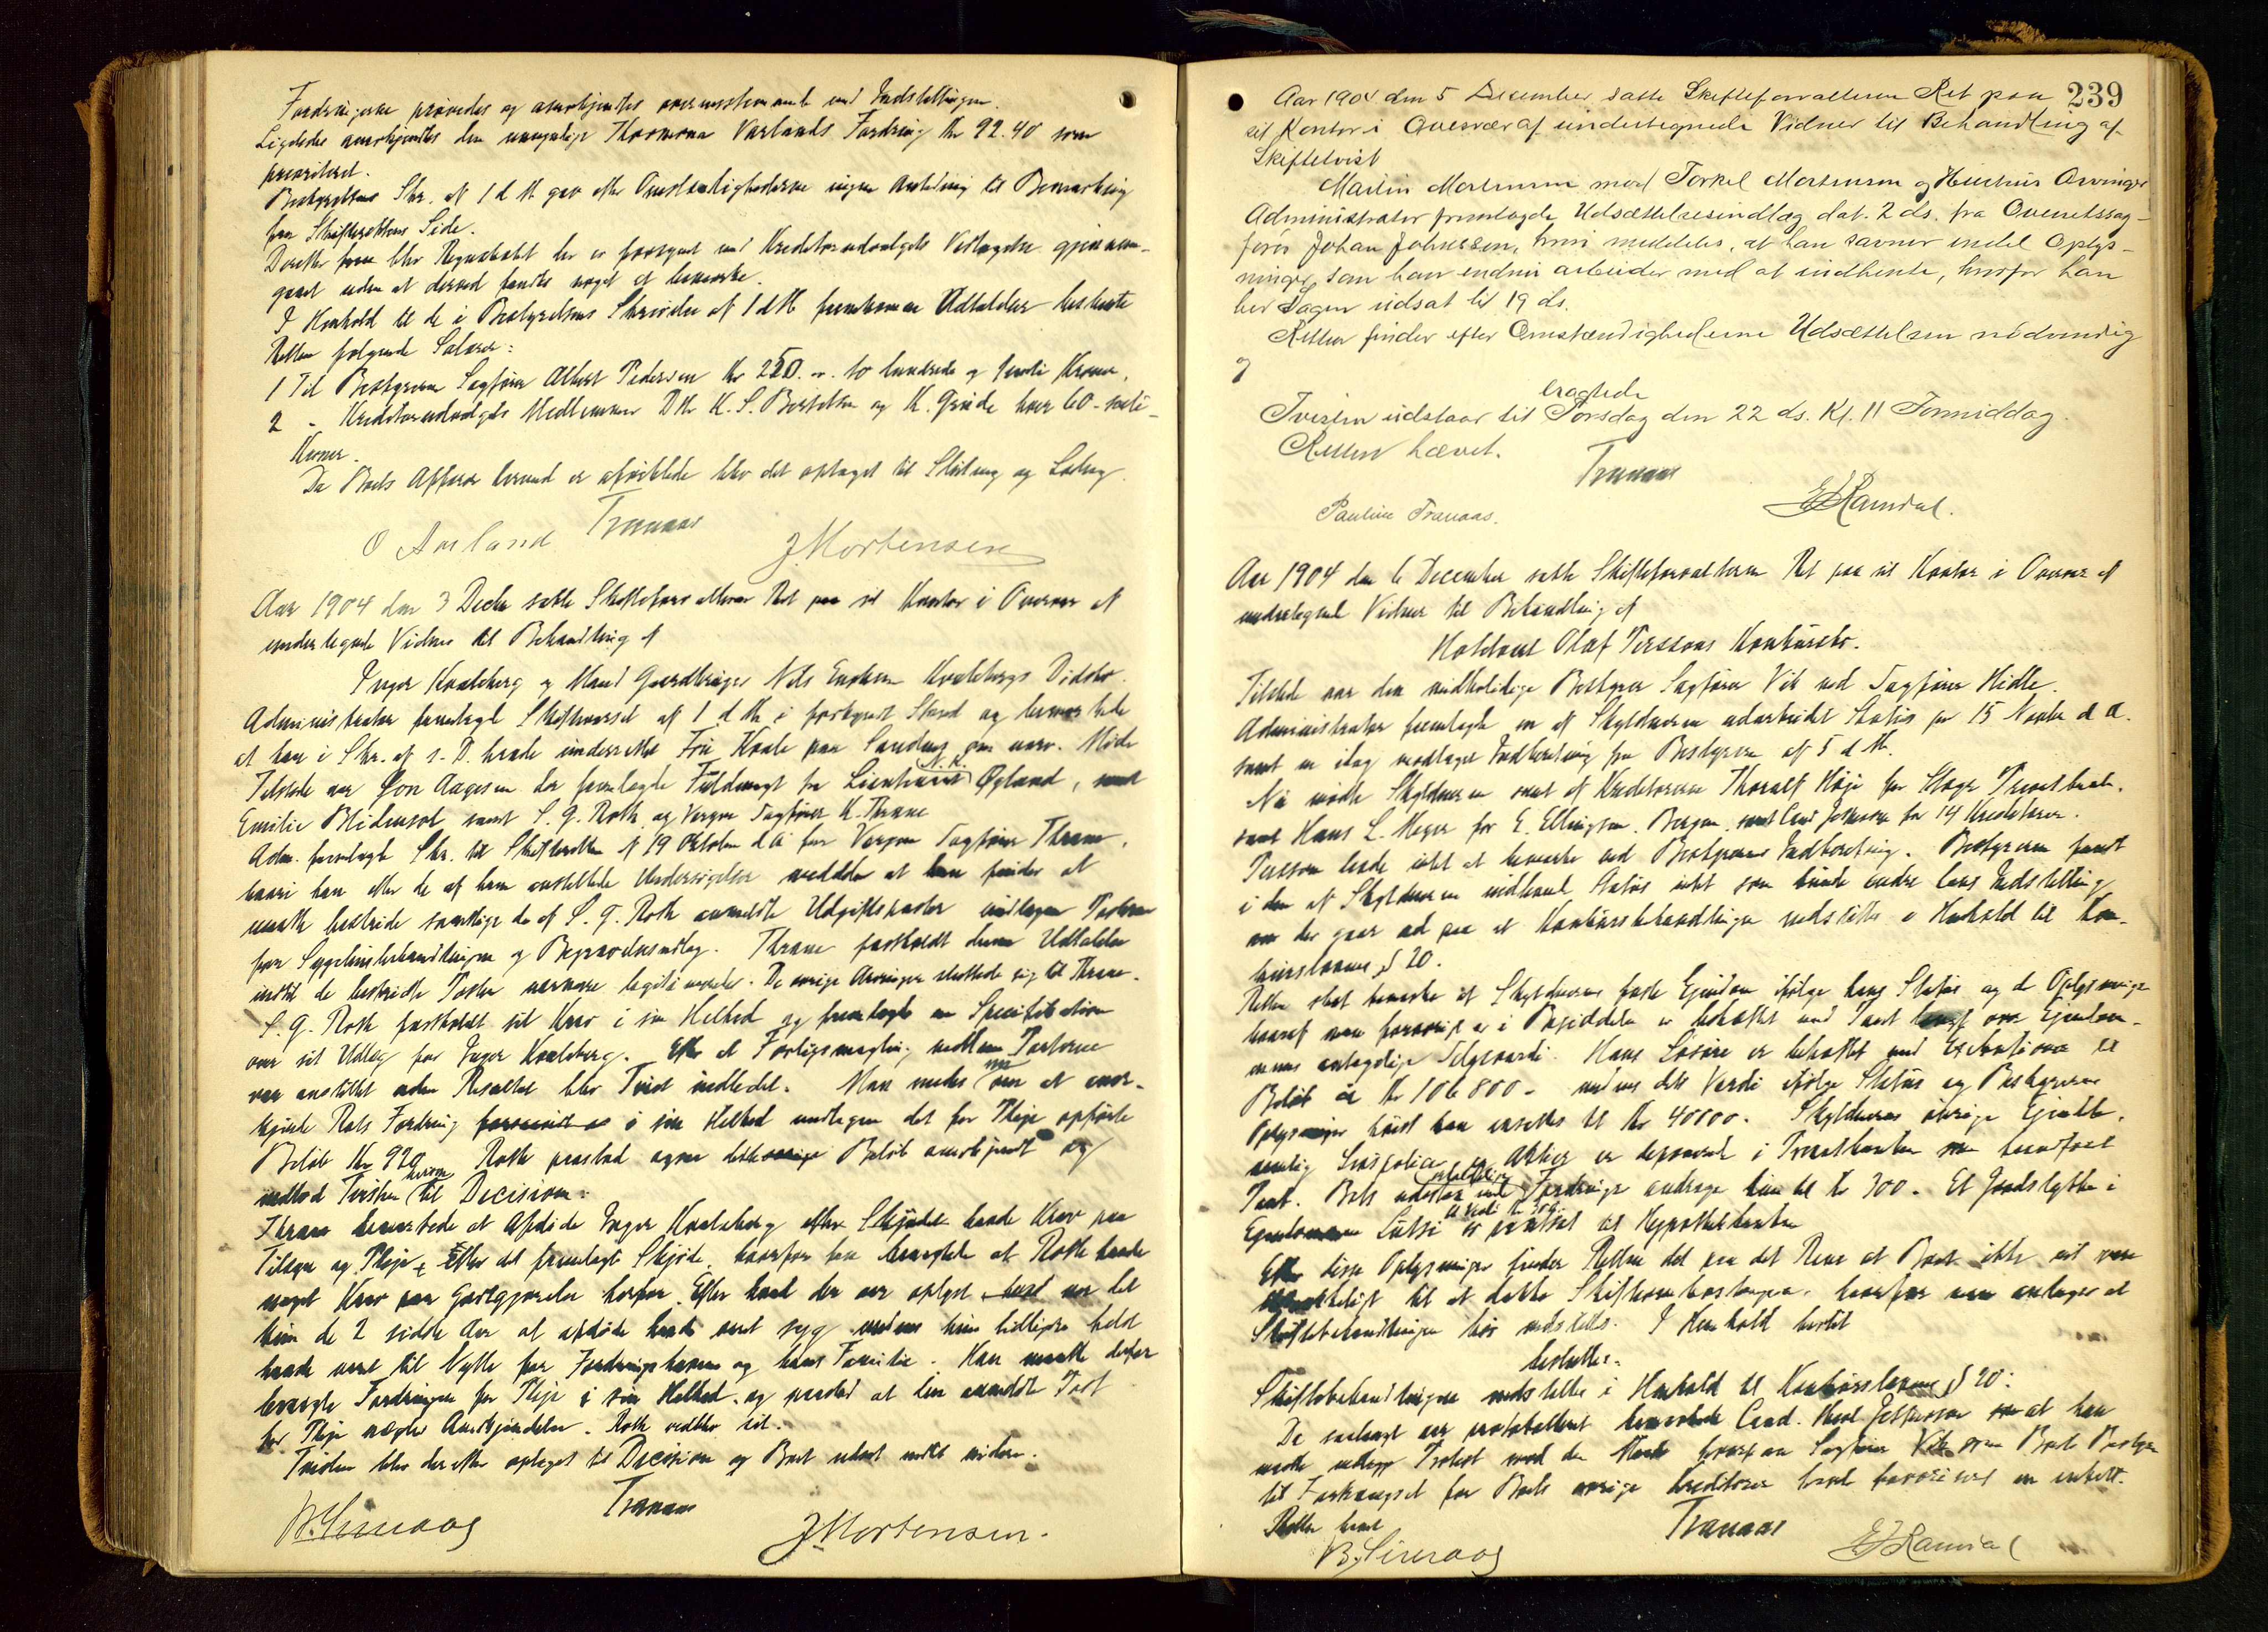 Fordringerne prøvedes og anerkjendtes overensstemmende med Indstillingen.
Ligeledes anerkjendtes den Varlands Fordring Kr 92.40 som
prioriteret.
Bestyrelsens Skr. af 1 d M. gav efter Omstændighederne ingen Anledning til Bemærkning
fra Skifterettens Side.
Derefter blev Regnskabet der er forsynet med Kreditorudvalgets Vedtagelse gjennem-
gaaet uden at derved fandtes noget at bemærke.
I Henhold til de i Bestyrelsens Skrivelse af 1 d M fremkomne Udtalelser bestemte
Retten følgende Salærer:
1 Til Bestyreren Sagfører Albert Pedersen Kr 220. to hundrede og Kroner.
2 - Kreditorudvalgets Medlemmer D'Hr K. S. Bertelsen og K. Grude hver 60 -
Kroner.
Da Boets Affærer hermed er afviklede blev det optaget til Slutning og Lodning.
O Aarland Tranaas J Mortensen
Aar 1904 den 3 Decbr satte Skifteforvalteren Ret paa sit Kontor i Overvær af
undertegnede Vidner til Behandling af
Inger Kvaleberg og Mand Gaardbruger Nils Kvalebergs Dødsbo.
Administrator fremlagde Skiftevarsel af 1 d M. i forkyndt Stand og bemærkede
at han i Skr. af s. D. havde underrettet Fru Kvale paa Sandnes om nærv. Møde
Tilstede var Jon Aagesen der fremlagde Fuldmagt fra N. K. Øgland, samt
Emilie samt S. G. Roth og Vergen Sagfører K. Thrane
Adm. fremlagde Skr. til Skifteretten af 19 Oktober d A fra Vergen Sagfører Thrane,
hvori han efter de af ham anstillede Undersøgelser meddeler at han finder at
maatte bestride samtlige de af S. G. Roth anmeldte Udgiftsposter undtagen Posterne
for Sygehusbehandlingen og Begravelsesudlæg. Thrane fastholdt denne Udtalelse
indtil de bestridte Poster nærmere legitimeredes. De øvrige Arvinger sluttede sig til Thrane.
S. G. Roth fastholdt sit Krav i sin Helhed og fremlagde en Specifikation
over sit Udlæg for Inger Kvaleberg. Efter at Forligsmægling mellem Parterne
var anstillet uden Resultat blev Tvist indledet. Man enedes nu om at aner-
kjende Roths Fordring i sin Helhed undtagen det for Pleje opførte
Beløb Kr 920 Roth paastod ogsaa dette Beløb anerkjendt og
indlod Tvisten herom til Decision:
Thrane bemærkede at Afdøde Inger Kvaleberg efter Skjøde havde Krav paa
Tilsyn og Pleje efter det fremlagte Skjøde, hvorfor han benegtede at Roth havde
noget Krav paa Godtgjørelse herfor. Efter hvad der var oplyst var det
kun de 2 sidste Aar at afdøde havde været syg medens hun tidligere
havde været til Nytte for Fordringshaveren og hans Familie. Han maatte derfor
benegte Fordringen for Pleje i sin Helhed og paastod at den anmeldte Post
for Pleje nægtes Anerkjendelse. Roth vedblev sit.
Tvisten blev derefter optaget til Decision og Boet udsat indtil videre.
B. Simaas Tranaas J Mortensen.
239
Aar 1904 den 5 December satte Skifteforvalteren Ret paa
sit Kontor i Overvær af undertegnede Vidner til Behandling af
Skiftetvist
Martin Mortensen mod Torkel Mortensen og Hustrus Arvinger
Administrator fremlagde Udsættelsesindlæg dat. 2 ds. fra Overretssag-
fører Johan Johnssen, hvori meddeles, at han savner endel Oplys-
ninger, som han endnu arbeider med at indhente, hvorfor han
ber Sagen udsat til 19 ds.
Retten finder efter Omstændighederne Udsættelsen nødvendig
og
eragtede
Tvisten udstaar til Torsdag den 22 ds. Kl. 11 Formiddag.
Retten hævet.
Tranaas
Pauline Tranaas. E Ramdal.
Aar 1904 den 6 December satte Skifteforvalteren Ret paa sit Kontor i Overvær af
undertegnede Vidner til Behandling af
Hotelvært Olaf Perssons Konkursbo.
Tilstede var den midlertidige Bestyrer Sagfører Vik ved Sagfører Hidle.
Administrator fremlagde en af Skyldneren udarbeidet Status pr 15 Novbr d A.
samt en idag modtaget Indberetning fra Bestyreren af 5 d M.
Nu mødte Skyldneren samt af Kreditorerne Thoralf Høje for Stav. Privatbank.
samt Hans L. Meyer for E. Ellingsen, Bergen, samt Cand Jespersen for 14 Kreditorer.
Persson havde intet at bemærke ved Bestyrerens Indberetning. Bestyreren fandt
i den af Skyldneren indleverede Status intet som kunde ændre hans Indstilling
som der gaar ud paa at Konkursbehandlingen indstilles i Henhold til Kon-
kurslovens § 20.
Retten skal bemærke at Skyldnerens faste Ejendom ifølge hans Status og de Oplysninger
hvoraf man forøvrigt er i Besiddelse er behæftet med Pant over Ejendom-
mens antagelige Salgsværdi. Hans Løsøre er behæftet med Exekutioner til
Beløb Kr 106 800 - medens dets Værdi ifølge Status og Bestyrerens
Oplysninger høist kan ansættes til Kr 40000. Skyldnerens øvrige Ejendele,
nemlig Livspolice og Aktier er deponeret i Privatbanken som haandfaaet
Pant. Boets Fordringer andrager kun til Kr 300. Et Jordstykke i
er pantsat til Hypothekbanken
Efter disse Oplysninger finder Retten det paa det Rene at Boet ikke vil være
til at dække Skifteomkostningerne, hvorfor man antager at
Skiftebehandlingen bør indstilles. I Henhold hertil
besluttes:
Skiftebehandlingen indstilles i Henhold til Konkurslovens § 20.
Da saalangt var protokolleret bemærkede Cand. Jespersen at han
maatte nedlægge Protest mod den Maade hvorpaa Sagfører Vik som Boets Bestyrer
til Fortrængsel for Boets øvrige Kreditorer havde favoriseret en enkelt.
Retten hævet
Tranaas
B. Simaas E Ramdal